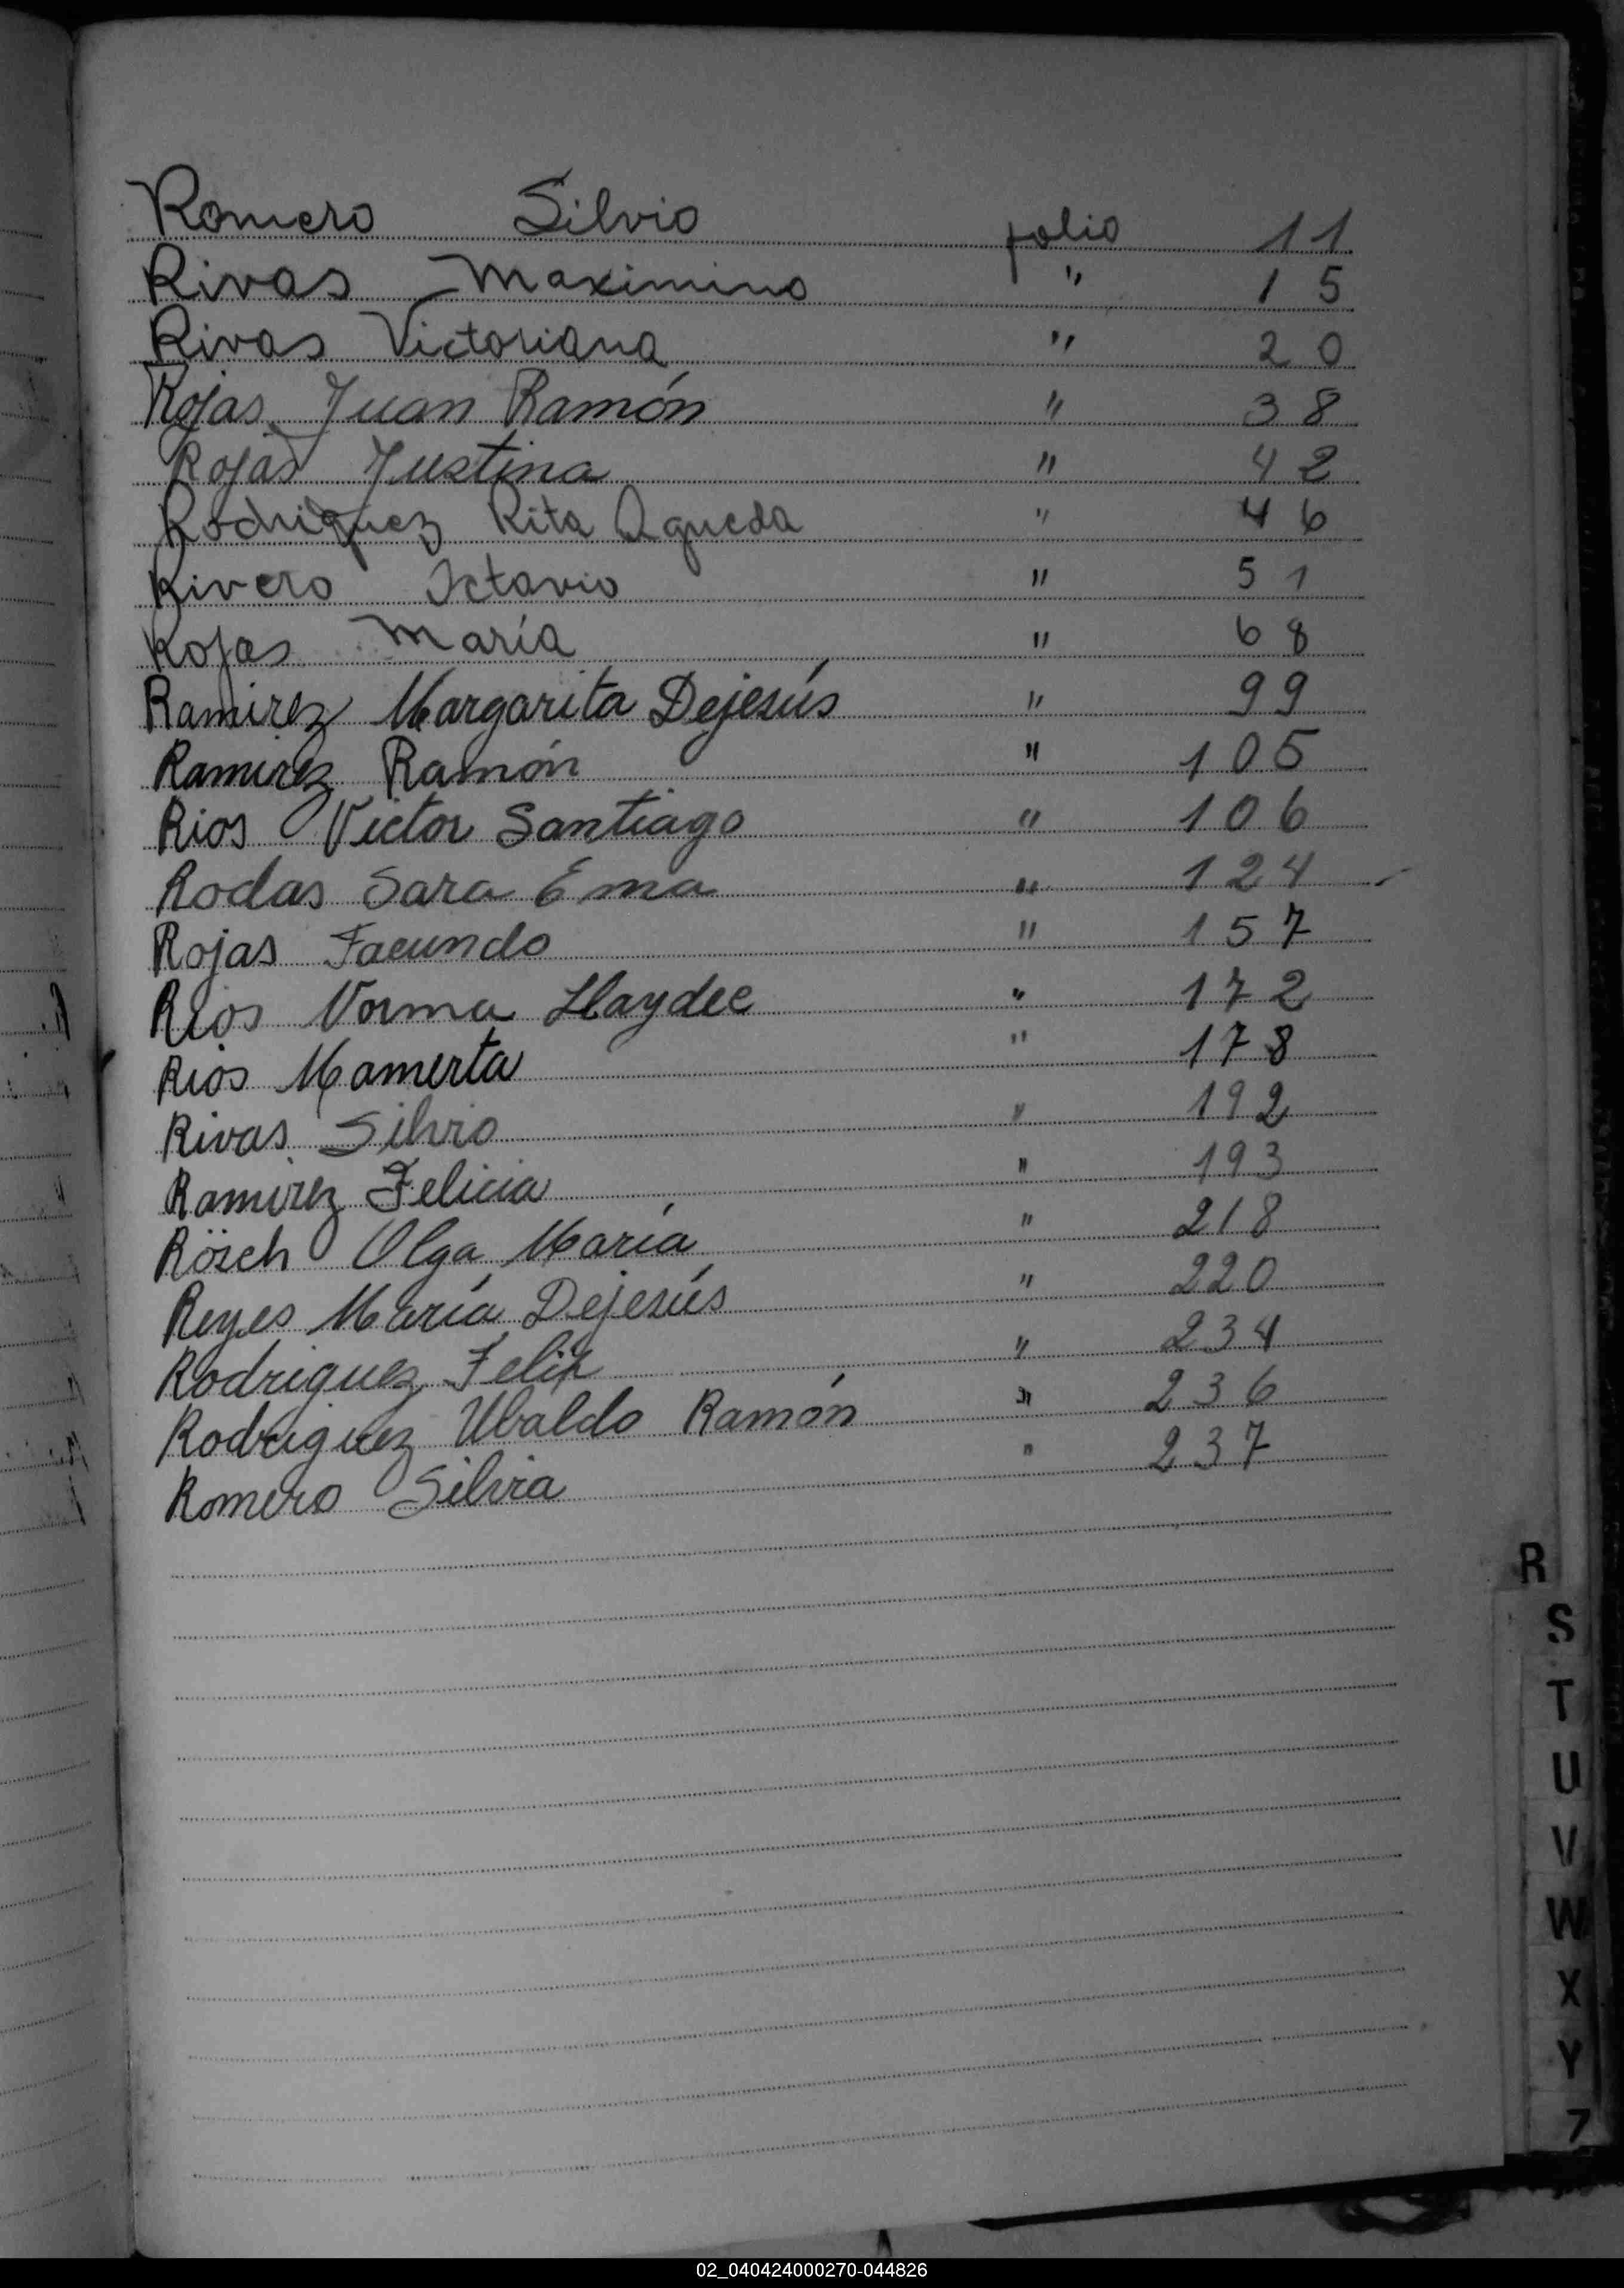 Romero Silvio folio 11
Rivas Maximino " 15
Rivas Victoriana " 20
Rojas Juan Ramón " 38
Rojas Justina " 42
Rodriguez Rita Agueda " 46
Rivero Octavio " 51
Rojas María " 68
Ramirez Margarita Dejesús " 99
Ramirez Ramón " 105
Rios Victor Santiago " 106
Rodas Sara Ema " 124
Rojas Facundo " 157
Rios Norma Haydee " 172
Rios Mamerta " 178
Rivas Silvio " 192
Ramirez Felicia " 193
Rösch Olga María " 218
Reyes María Dejesús " 220
Rodriguez Felix " 234
Rodriguez Ubaldo Ramón " 236
Romero Silvia " 237
R
S
T
U
V
W
X
Y
Z
02_040424000270-044826